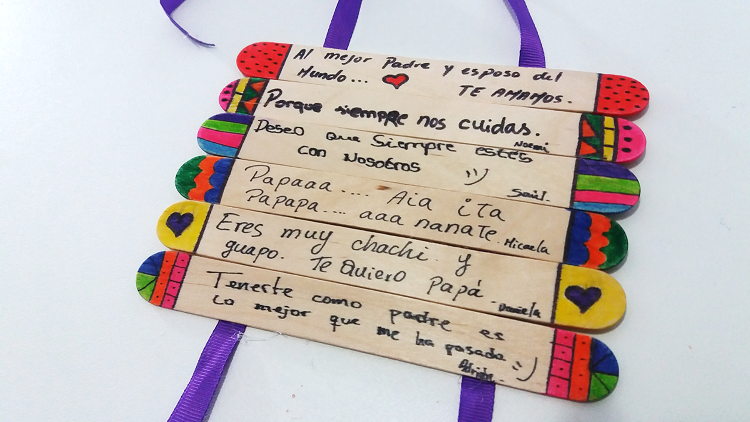 Al mejor Padre y esposo del
Mundo... TE AMAMOS.
Porque siempre nos cuidas.
Noemi
Deseo que Siempre estés
con Nosotros
Saúl.
Papaaa.... Aia ita
Papapa.... aaa nanate.. Micaela
Eres muy chachi y
guapo. Te Quiero Papá.
Daniela
Tenerte como padre es
Lo mejor que me ha pasado.